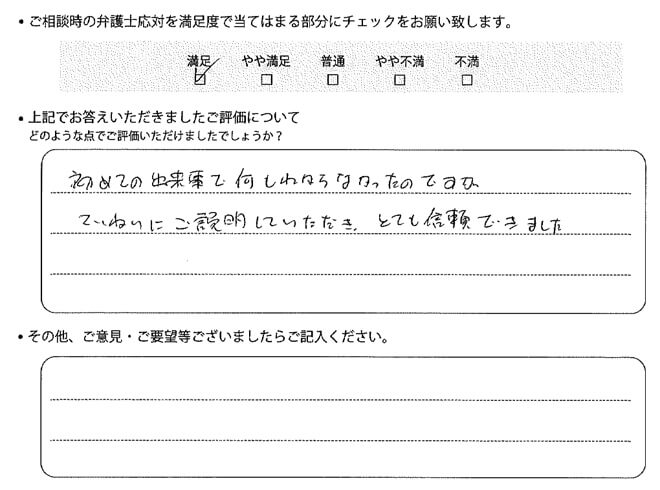 ・ご相談時の弁護士応対を満足度で当てはまる部分にチェックをお願い致します。
満足 やや満足 普通 やや不満 不満
☑ □ □ □ □
・上記でお答えいただきましたご評価について
どのような点でご評価いただけましたでしょうか？
初めての出来事で何もわからなかったのですが
ていねいにご説明していただき、とても信頼できました
・その他、ご意見・ご要望等ございましたらご記入ください。